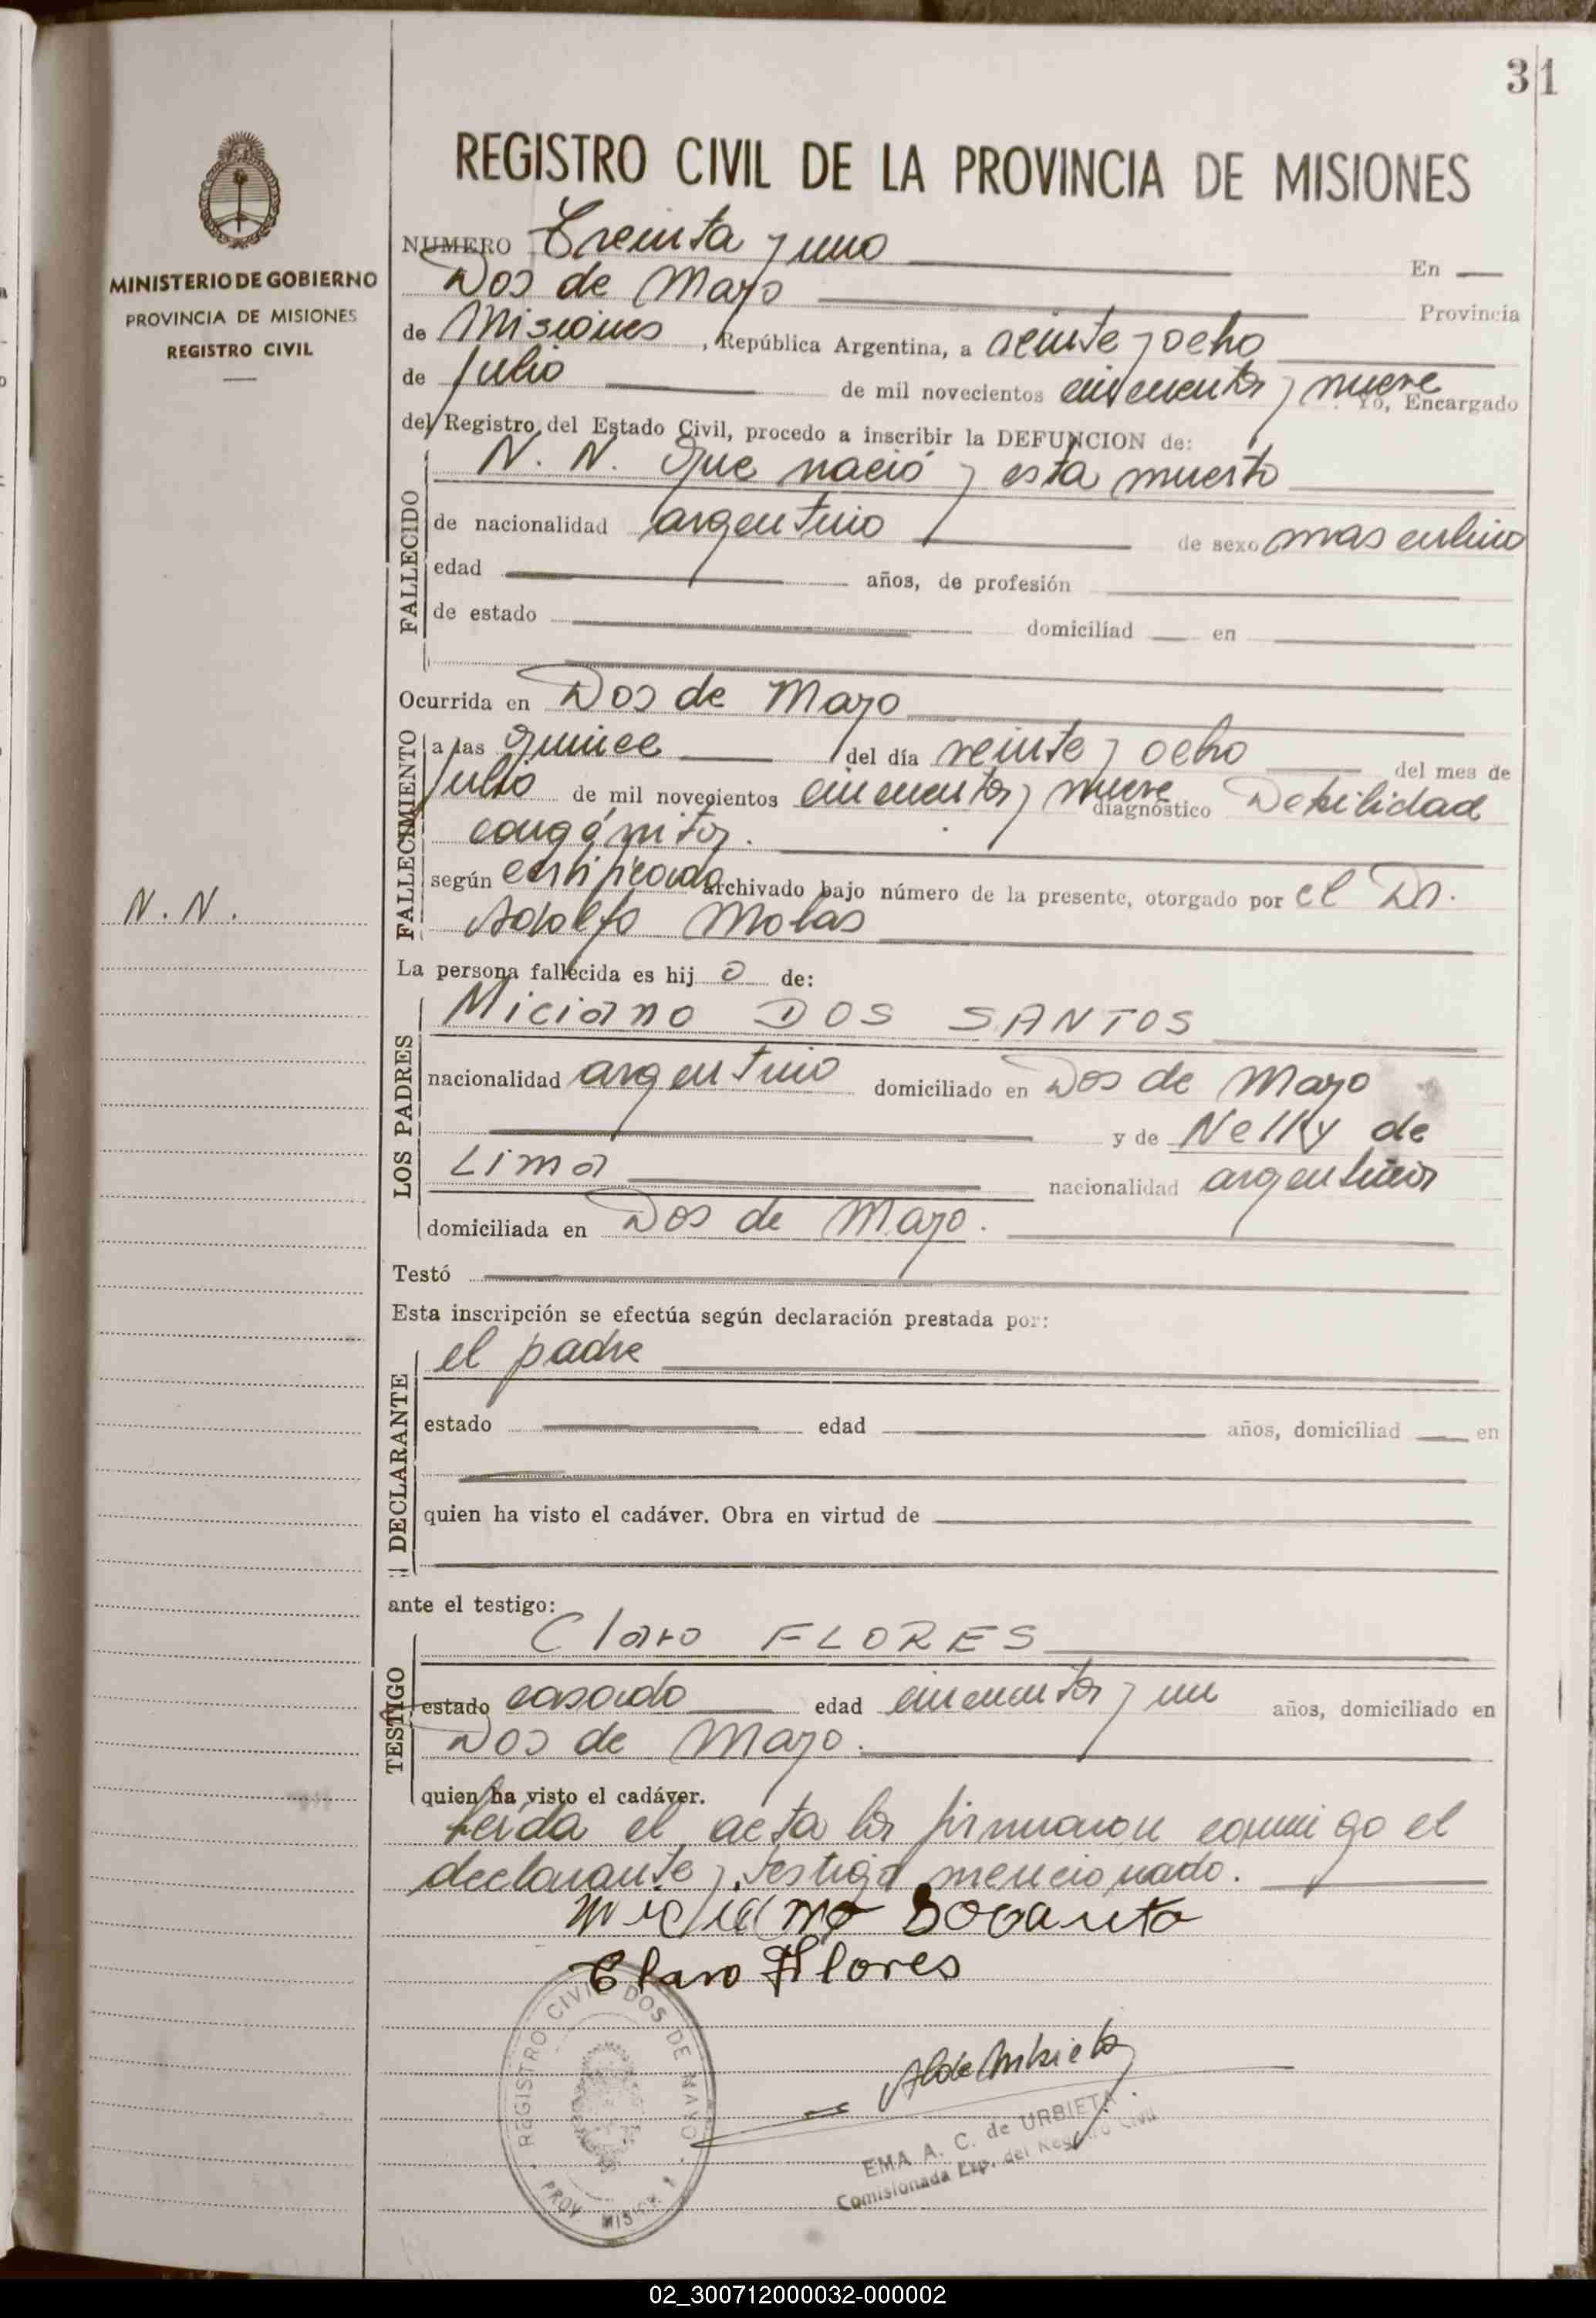 31
REGISTRO CIVIL DE LA PROVINCIA DE MISIONES
MINISTERIO DE GOBIERNO
PROVINCIA DE MISIONES
REGISTRO CIVIL
NUMERO Treinta y uno En
Dos de Mayo Provincia
de Misiones, República Argentina, a veinte y ocho
de Julio de mil novecientos cincuenta y nueve. Yo, Encargado
del Registro del Estado Civil, procedo a inscribir la DEFUNCION de:
FALLECIDO
N. N. que nació y esta muerto
de nacionalidad argentino de sexo masculino
edad años, de profesión
de estado domiciliad en
Ocurrida en Dos de Mayo
FALLECIMIENTO
a las quince del día veinte y ocho del mes de
Julio de mil novecientos cincuenta y nueve diagnóstico Debilidad
congénita.
según certificado archivado bajo número de la presente, otorgado por el Dr.
N. N.
Adolfo Molas
La persona fallecida es hijo de:
LOS PADRES
Miciano DOS SANTOS
nacionalidad argentino domiciliado en Dos de Mayo
y de Nelly de
Lima nacionalidad argentina
domiciliada en Dos de Mayo.
Testó
Esta inscripción se efectúa según declaración prestada por:
DECLARANTE
el padre
estado edad años, domiciliad en
quien ha visto el cadáver. Obra en virtud de
ante el testigo:
TESTIGO
Claro FLORES
estado casado edad cincuenta y un años, domiciliado en
Dos de Mayo.
quien ha visto el cadáver.
Leida el acta la firmaron conmigo el
declarante y testigo mencionado.
Claro Flores
REGISTRO CIVIL DOS DE MAYO
PROV. MISIONES
EMA A. C. de URBIETA
Comisionada Exp. del Registro Civil
02_300712000032-000002